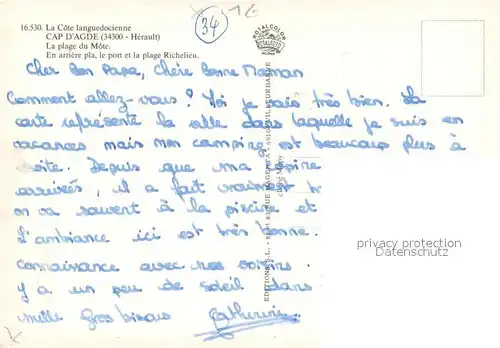 16.530. La Côte languedocienne
CAP D'AGDE (34300 - Hérault)
La plage du Môle.
En arrière pla, le port et la plage Richelieu.
34
1€
ROYALCOLOR
Cher Bon Papa, Chère Bonne Maman
Comment allez-vous? Moi je vais très bien. La
carte représente la ville dans laquelle je suis en
vacances mais mon camping est beaucoup plus à
droite. Depuis que ma
arrivées, il a fait vraiment
on va souvent à la piscine et
L'ambiance ici est très bonne.
connaissance avec nos voisins
y a un peu de soleil dans
mille Gros bisous Catherine
EDITIONS S.L. - AVENUE MAGENTA - VILLEURBANNE
privacy protection
Datenschutz